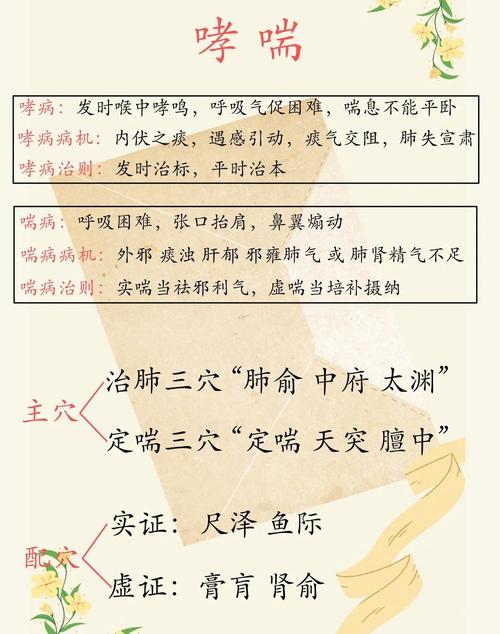 哮喘
哮病：发时喉中哮鸣，呼吸气促困难，喘息不能平卧
哮病病机：内伏之痰，遇感引动，痰气交阻，肺失宣肃
哮病治则：发时治标，平时治本
喘病：呼吸困难，张口抬肩，鼻翼煽动
喘病病机：外邪 痰浊 肝郁 邪雍肺气 或 肺肾精气不足
喘病治则：实喘当祛邪利气，虚喘当培补摄纳
主穴
治肺三穴“肺俞 中府 太渊”
定喘三穴“定喘 天突 膻中”
配穴
实证：尺泽 鱼际
虚证：膏肓 肾俞